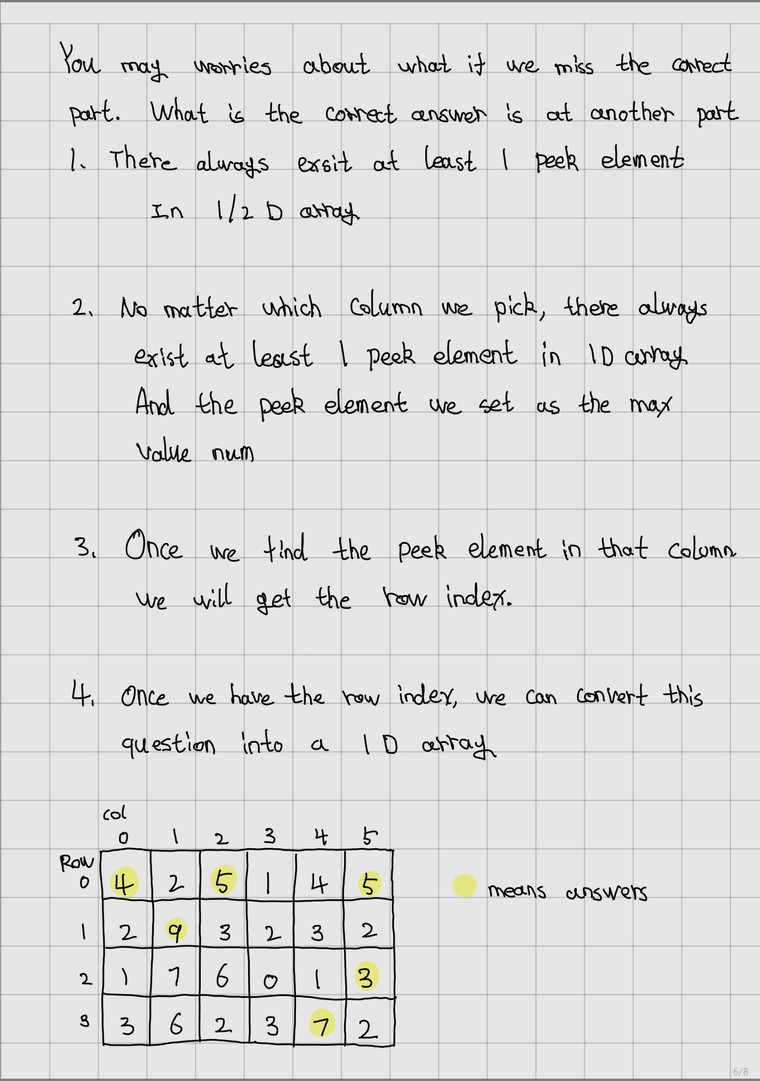 You may worries about what if we miss the correct
part. What is the correct answer is at another part
1. There always exsit at least 1 peek element
In 1/2 D array
2. No matter which column we pick, there always
exist at least 1 peek element in 1D array
And the peek element we set as the max
value num
3. Once we find the peek element in that column
we will get the row index.
4. Once we have the row index, we can convert this
question into a 1D array
col
0 1 2 3 4 5
Row
0 4 2 5 1 4 5
means answers
1 2 9 3 2 3 2
2 1 7 6 0 1 3
3 3 6 2 3 7 2
6/8